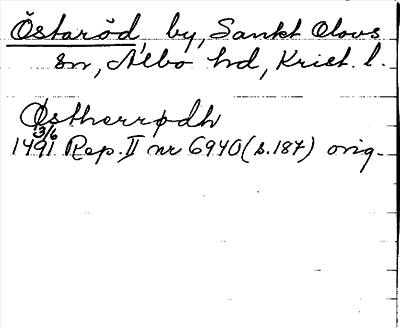 Östaröd, by, Sankt Olovs
sn, Albo hd, Krist. l.
Østherrødh
3/6
1491 Rep. II nr 6940 (s. 187) orig.